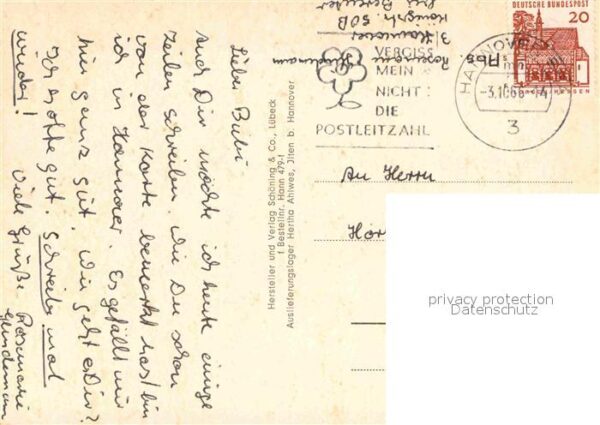 Lieber Bubi
auch Dir möchte ich heute einige
Zeilen schreiben. Wie Du schon
von der Karte bemerkt hast bin
ich in Hannover. Es gefällt mir
hier ganz gut. Wie geht es Dir?
Ich hoffe gut. Schreib mal
wieder! Viele Grüße Rosemarie
Hersteller und Verlag Schöning & Co., Lübeck
Bestellnr. Hann 479
Auslieferungslager Hertha Ahlwes, Ilten b. Hannover
Abs.
Rosemarie
3 Hannover
Königstr. 50B
bei
VERGISS
MEIN
NICHT:
DIE
POSTLEITZAHL
HANNOVER
-3.10.66-14
3
DEUTSCHE BUNDESPOST
20
An Herrn
privacy protection
Datenschutz